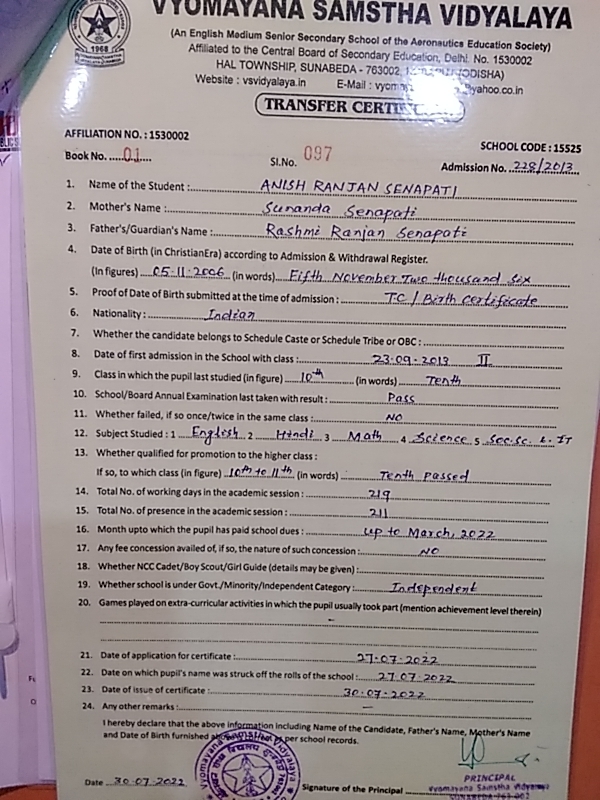 VYOMAYANA SAMSTHA VIDYALAYA
(An English Medium Senior Secondary School of the Aeronautics Education Society)
Affiliated to the Central Board of Secondary Education, Delhi. No. 1530002
HAL TOWNSHIP, SUNABEDA - 763002, (ODISHA)
Website : vsvidyalaya.in E-Mail : @yahoo.co.in
TRANSFER
1968
AFFILIATION NO. : 1530002
SCHOOL CODE : 15525
Book No. 01 Sl.No. 097 Admission No. 228/2013
1. Name of the Student : ANISH RANJAN SENAPATI
2. Mother's Name : Sunanda Senapati
3. Father's/Guardian's Name : Rashmi Ranjan Senapati
4. Date of Birth (in ChristianEra) according to Admission & Withdrawal Register.
(In figures) 05-11-2006 (in words) Fifth November Two thousand Six
5. Proof of Date of Birth submitted at the time of admission : TC / Birth certificate
6. Nationality : Indian
7. Whether the candidate belongs to Schedule Caste or Schedule Tribe or OBC :
8. Date of first admission in the School with class : 23-09-2013 II
9. Class in which the pupil last studied (in figure) 10th (in words) Tenth
10. School/Board Annual Examination last taken with result : Pass
11. Whether failed, if so once/twice in the same class : NO
12. Subject Studied : 1 English 2 Hindi 3 Math 4 Science 5 Soc.Sc. & IT
13. Whether qualified for promotion to the higher class :
If so, to which class (in figure) 10th to 11th (in words) Tenth Passed
14. Total No. of working days in the academic session : 219
15. Total No. of presence in the academic session : 211
16. Month upto which the pupil has paid school dues : up to March, 2022
17. Any fee concession availed of, if so, the nature of such concession : NO
18. Whether NCC Cadet/Boy Scout/Girl Guide (details may be given) :
19. Whether school is under Govt./Minority/Independent Category : Independent
20. Games played on extra-curricular activities in which the pupil usually took part (mention achievement level therein)
-
21. Date of application for certificate : 27-07-2022
22. Date on which pupil's name was struck off the rolls of the school : 27-07-2022
23. Date of issue of certificate : 30-07-2022
24. Any other remarks : -
I hereby declare that the above information including Name of the Candidate, Father's Name, Mother's Name
and Date of Birth furnished above is as per school records.
Date 30-07-2022 Signature of the Principal
PRINCIPAL
Vyomayana Samstha Vidyalaya